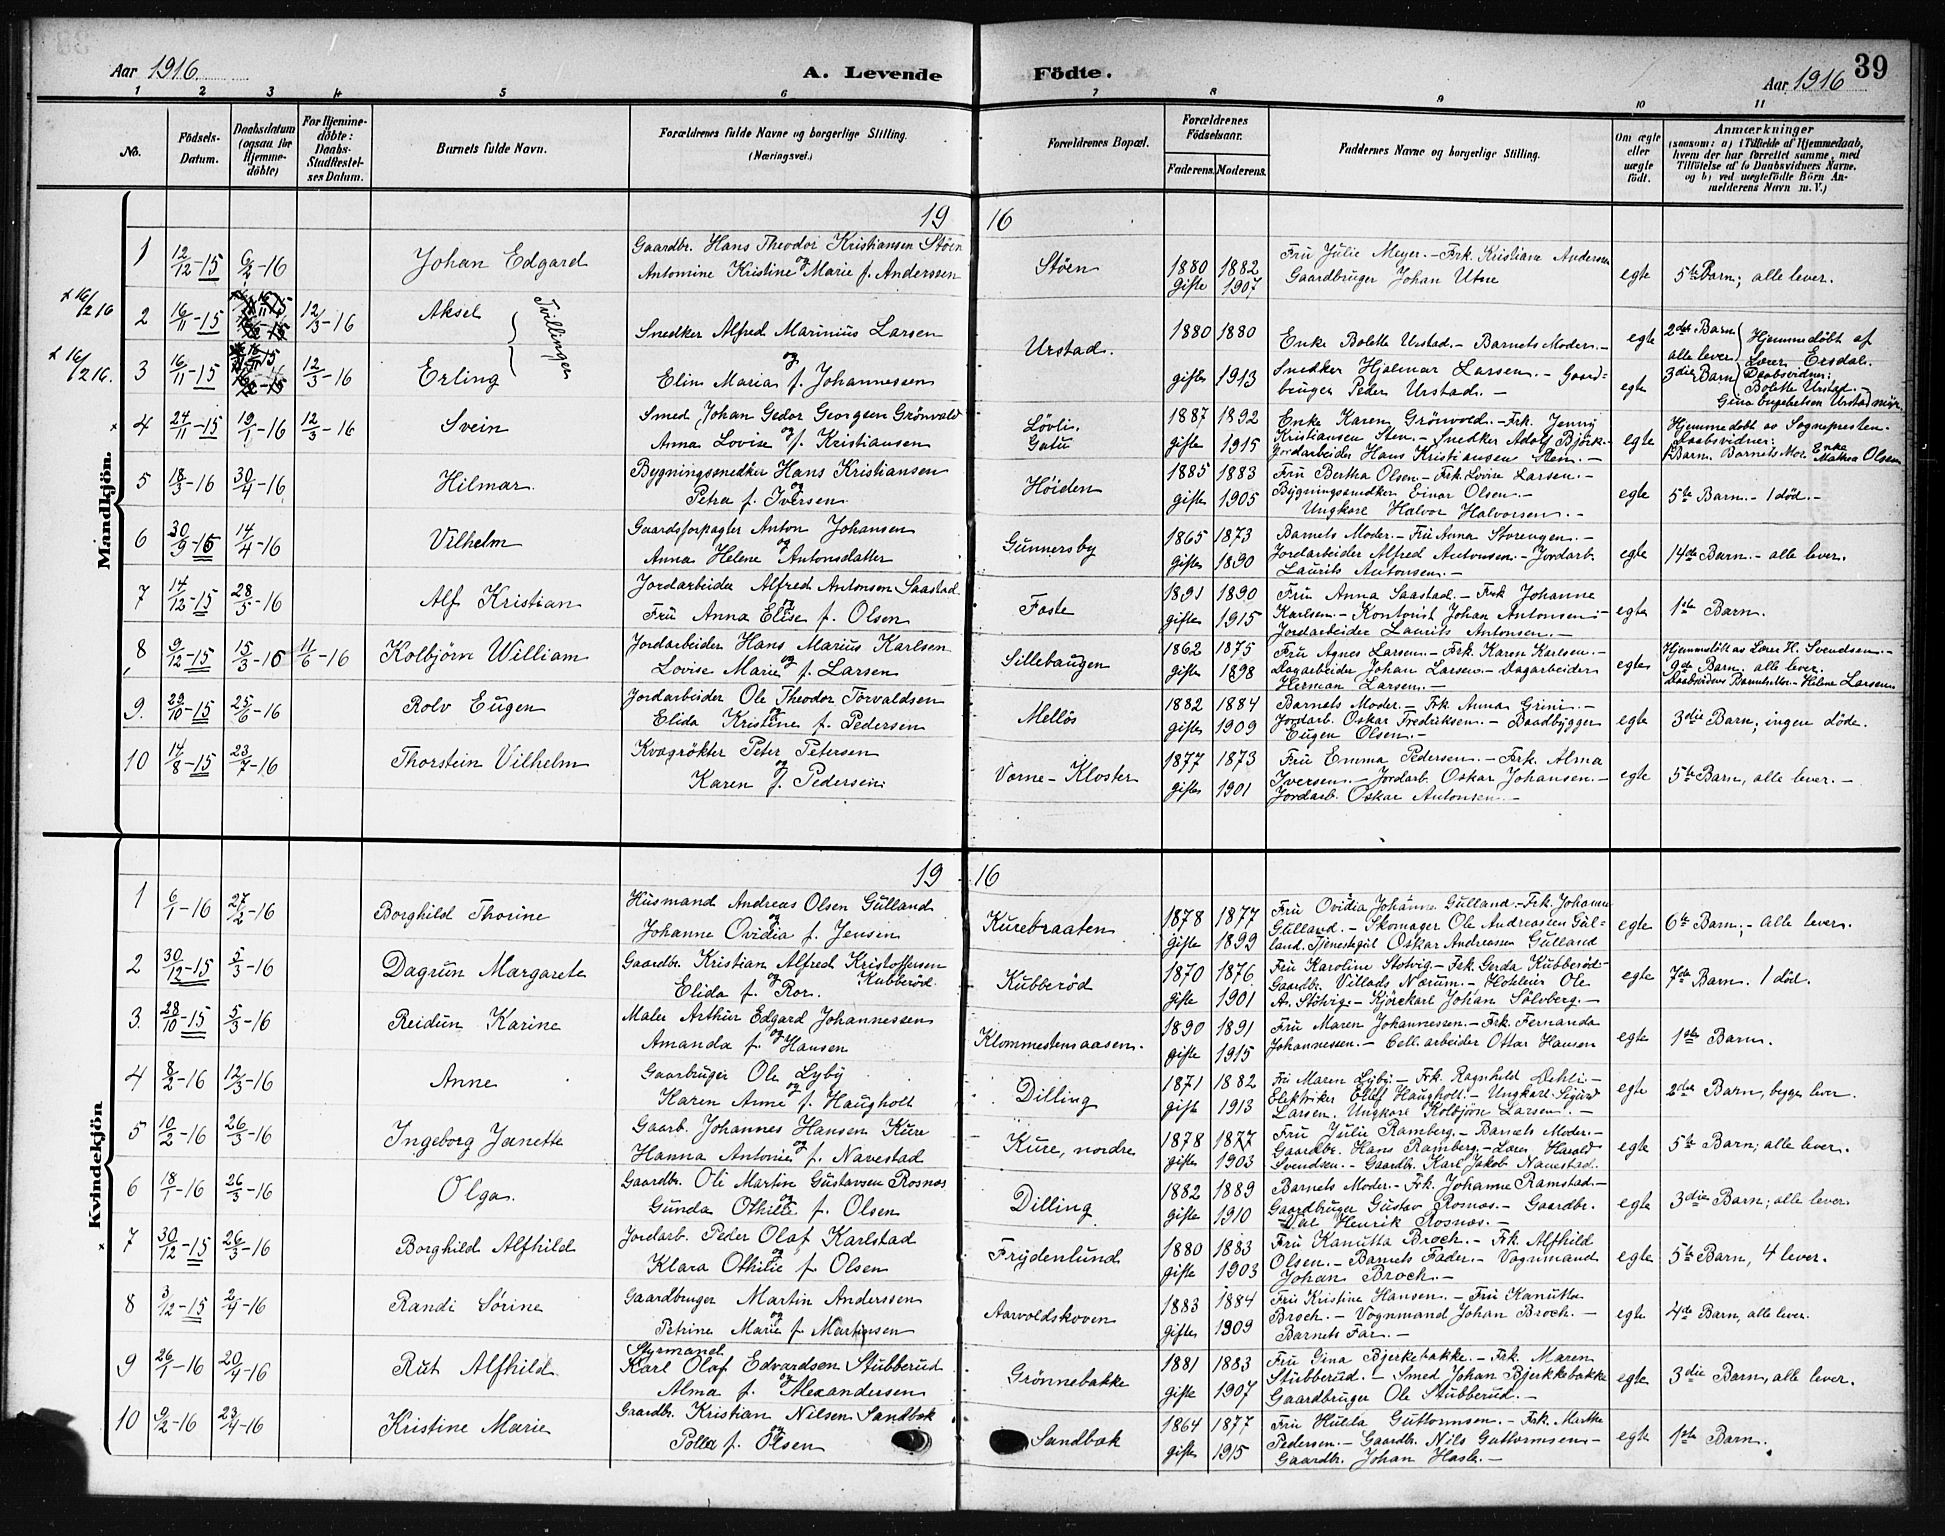 Aar 1916.
A. Levende Födte.
Aar 1916
39
1 2 3 4 5 6 7 8 9 10 11
No.
Födsels-Datum.
Daabsdatum (ogsaa for Hjemmedöbte)
For Hjemmedöbte: Daabs-Stadfæstelses Datum.
Barnets fulde Navn.
Forældrenes fulde Navne og borgerlige Stilling. (Næringsvei.)
Forældrenes Bopæl.
Forældrenes Födselsaar.
Faderens. Moderens.
Faddernes Navne og borgerlige Stilling.
Om ægte eller uægte födt.
Anmærkninger
(saasom: a) i Tilfælde af Hjemmedaab, hvem der har forrettet samme, med Tilföielse af to Daabsvidners Navne, og b) ved uægtefödte Börn Anmelderens Navn m. V.)
Mandkjön.
19 16
1 12/12-15 6/2-16 Johan Edgard
Gaardbr. Hans Theodor Kristiansen Stöen
og
Antomine Kristine Marie f. Anderssen
Stöen
1880 1882
gifte 1907
Fru Julie Meyer.- Frk. Kristiane Andersen
Gaardbruger Johan Utne
egte
5te Barn; alle lever.
+ 16/2 16
2 16/11-15 12/3-16 Aksel
Tvillinger
Snedker Alfred Marinius Larsen
og
Urstad.
1880 1880
Enke Bolette Urstad.- Barnets Moder.-
egte
2det Barn alle lever
Hjemmedöbt af Lærer Eesdal.
+ 16/2 16.
3 16/11-15 12/3-16 Erling
Elin Maria f. Johannessen
gifte 1913
Snedker Hjalmar Larsen.- Gaardbruger Peder Urstad.-
egte
3die Barn
Daabsvidner: Bolette Urstad.- Gina Engebretsen Urstad
4 24/11-15 19/1-16 12/3-16 Svein
Smed Johan Gedor Georgsen Grönvold
og
Anna Lovise f. Kristiansen
Lövli. Gatu
1887 1892
gifte 1915
Enke Karen Grönvold.- Frk. Jenny
Kristiansen Sten.- Snedker Adolf Björk.-
Jordarbeider Hans Kristiansen Sten.-
egte
Hjemmedöbt av Sognepresten.
Daabsvidner:
1 Barn. Barnets Mor. Enke Mathea Olsen
5 18/3-16 30/4-16 Hilmar.
Bygningssnedker Hans Kristiansen
og
Petra f. Iversen
Höiden
1885 1883
gifte 1905
Fru Bertha Olsen.- Frk. Lovise Larsen.-
Bygningssnedker Einar Olsen.-
Ungkarl Halvor Halvorsen.-
egte
5te Barn.- 1 död.-
6 30/9-15 14/4-16 Vilhelm
Gaardsforpagter Anton Johansen
og
Anna Helene Antonsdatter
Gunnersby
1865 1873
gifte 1890
Barnets Moder.- Fru Anna Storengen.-
Jordarbeider Alfred Antonsen.- Jordarb.
Laurits Antonsen.-
egte
14de Barn.- alle lever.
7 14/12-15 28/5-16 Alf Kristian
Jordarbeider Alfred Antonsen Saastad
og
Fru Anna Elise f. Olsen
Faste
1891 1890
gifte 1915
Fru Anna Saastad.- Frk. Johanne
Karlsen.- Kontorist Johan Antonsen.-
Jordarbeider Laurits Antonsen.-
egte
1ste Barn.
8 9/12-15 15/3-16 11/6-16 Kolbjörn William
Jordarbeider Hans Marius Karlsen
og
Lovise Marie f. Larsen
Sillebaugen
1862 1875
gifte 1898
Fru Agnes Larsen.- Frk. Karen Karlsen.-
Dagarbeider Johan Larsen.- Dagarbeider
Herman Larsen.-
egte
Hjemmedöbt av Lærer H. Svendsen.-
9de Barn. alle lever.
Daabsvidner Barnets Mor.- Helene Larsen
9. 29/10-15 25/6-16 Rolv Eugen
Jordarbeider Ole Theodor Torvaldsen
og
Elida Kristine f. Pedersen
Mellös
1882 1884
gifte 1909
Barnets Moder.- Frk. Anna Grini.-
Jordarb. Oskar Fredriksen.- Baadbygger
Eugen Olsen.-
egte
3die Barn; ingen döde.
10 14/8-15 23/7-16 Thorstein Vilhelm
Kvægrökter Peter Petersen
og
Karen f. Pedersen
Vorne-Kloster
1877 1873
gifte 1901
Fru Emma Pedersen.- Frk. Alma
Iversen.- Jordarb. Oskar Johansen.-
Jordarb. Oskar Antonsen.-
egte
5te Barn, alle lever.-
Kvindekjön
19 16
1 6/1-16 27/2-16 Borghild Thorine
Husmand Andreas Olsen Gulland
og
Johanne Ovidia f. Jensen
Kurebraaten
1878 1877
gifte 1899
Fru Ovidia Johanne Gulland.- Frk. Johanne
Gulland.- Skomager Ole Andreasen Gulland. Tjenestegut Oskar Andreasen Gulland
egte
6te Barn;- Alle lever.
2 30/12-15 5/3-16 Dagrun Margarete
Gaardbr. Kristian Alfred Kristoffersen Kubberöd
og
Elida f. Ror.
Kubberöd
1870 1876
gifte 1901
Fru Karoline Stotvig.- Frk. Gerda Kubberöd-
Gaardbr. Villads Nærum.- Hoteleier Ole
A. Stötvig.- Kjörekarl Johan Sölvberg.-
egte
7de Barn. 1 död.
3. 28/10-15 5/3-16 Reidun Karine
Maler Arthur Edgard Johannessen
og
Amanda f. Hansen
Klommestensaasen.
1890 1891
gifte 1915
Fru Maren Johannessen.- Frk. Fernanda
Johannessen.- Cell.arbeider Ottar Hansen
egte
1ste Barn.
4 8/2-16 12/3-16 Anne
Gaarbruger Ole Lyby
og
Karen Anne f. Haugholt
Dilling
1871 1882
gifte 1913
Fru Maren Lyby.- Frk. Ragnhild Oehli.-
Elektriker Olaf Haugholt.- Ungkarl Sigurd
Larsen. Ungkarl Kolbjörn Larsen.-
egte
2det Barn, begge lever.
5 10/2-16 26/3-16 Ingeborg Janette
Gaarb. Johannes Hansen Kure
og
Hanna Antonie f. Navestad
Kure, nordre
1878 1877
gifte 1903
Fru Julie Ramberg.- Barnets Moder.-
Gaardbr. Hans Ramberg.- Lærer Harald
Svendsen.- Gaardbr. Karl Jakob Navestad.
egte
5te Barn; alle lever.
6 18/1-16 26/3-16 Olga.
Gaardbr. Ole Martin Gustavsen Rosnæs
og
Gunda Othilie f. Olsen
Dilling
1882 1889
gifte 1910
Barnets Moder.- Frk. Johanne Ramstad.-
Gaardbruger Gustav Rosnæs.- Gaardbr.
Henrik Rosnæs.-
egte
3die Barn; alle lever.
7 30/12-15 26/3-16 Borghild Alfhild
Jordarb. Peder Olaf Karlstad
og
Klara Othilie f. Olsen
Frydenlund
1880 1883
gifte 1903
Fru Kanutta Broch.- Frk. Alfhild
Olsen.- Barnets Fader.- Vognmand
Johan Broch.-
egte
5te Barn, 4 lever.
8 3/12-15 2/4-16 Randi Sörine
Gaardbruger Martin Anderssen
og
Petrine Marie f. Martinsen
Aarvoldskoven
1883 1884
gifte 1909
Fru Kristine Hansen.- Fru Kanutta
Broch.- Vognmand Johan Broch.-
Barnets Far.-
egte
4de Barn, alle lever.
9 26/1-16 20/4-16 Rut Alfhild
Styrmand
Karl Olaf Edvardsen Stubberud
og
Alma f. Alexandersen
Grönnebakke
1881 1883
gifte 1907
Fru Gina Bjerkebakke.- Frk. Maren
Stubberud.- Smed Johan Bjerkebakke
Gaardbruger Ole Stubberud.-
egte
3die Barn, alle lever.
10 9/2-16 23/4-16 Kristine Marie
Gaardbr. Kristian Nilsen Sandbæk
og
Polla f. Olsen
Sandbæk
1864 1877
gifte 1915
Fru Hulda Guttormsen.- Frk. Marthe
Pedersen.- Gaardbr. Nils Guttormsen.-
Gaardbr. Johan Hasle.-
egte
1ste Barn.